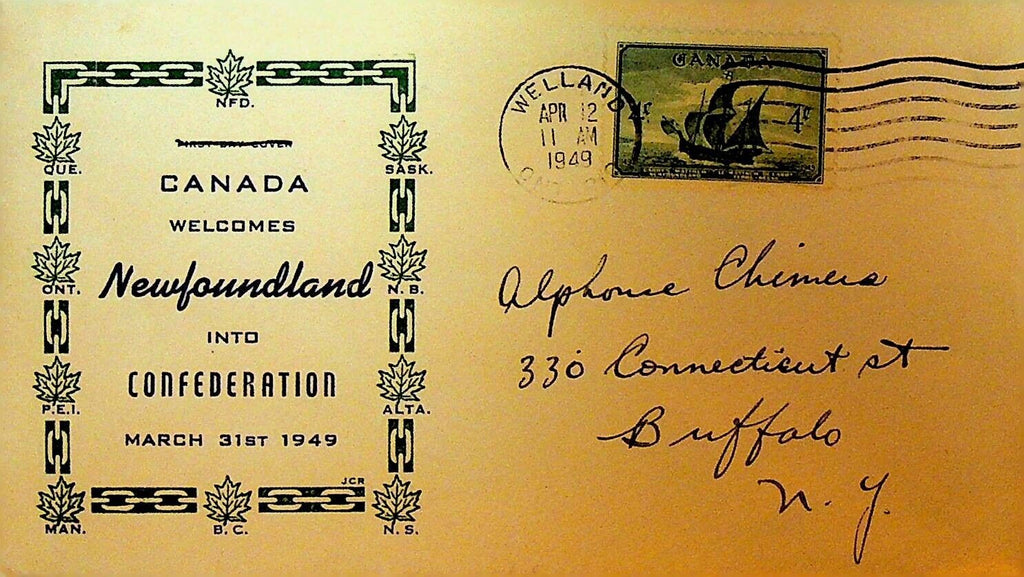 NFD.
FIRST DAY COVER
QUE.
SASK.
CANADA
WELCOMES
ONT.
Newfoundland
N.B.
INTO
P.E.I.
CONFEDERATION
ALTA.
MARCH 31ST 1949
JCR
MAN.
B.C.
N.S.
WELLAND
APR 12
11 AM
1949
CANADA
4¢
4¢
Alphonse Chimera
330 Connecticut st
Buffalo
N. Y.